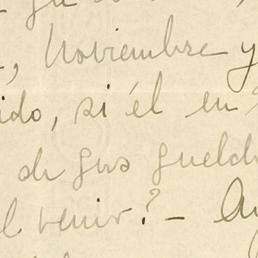 , Noviembre y
ido, si él en
de gus gueld
l venir? - Au